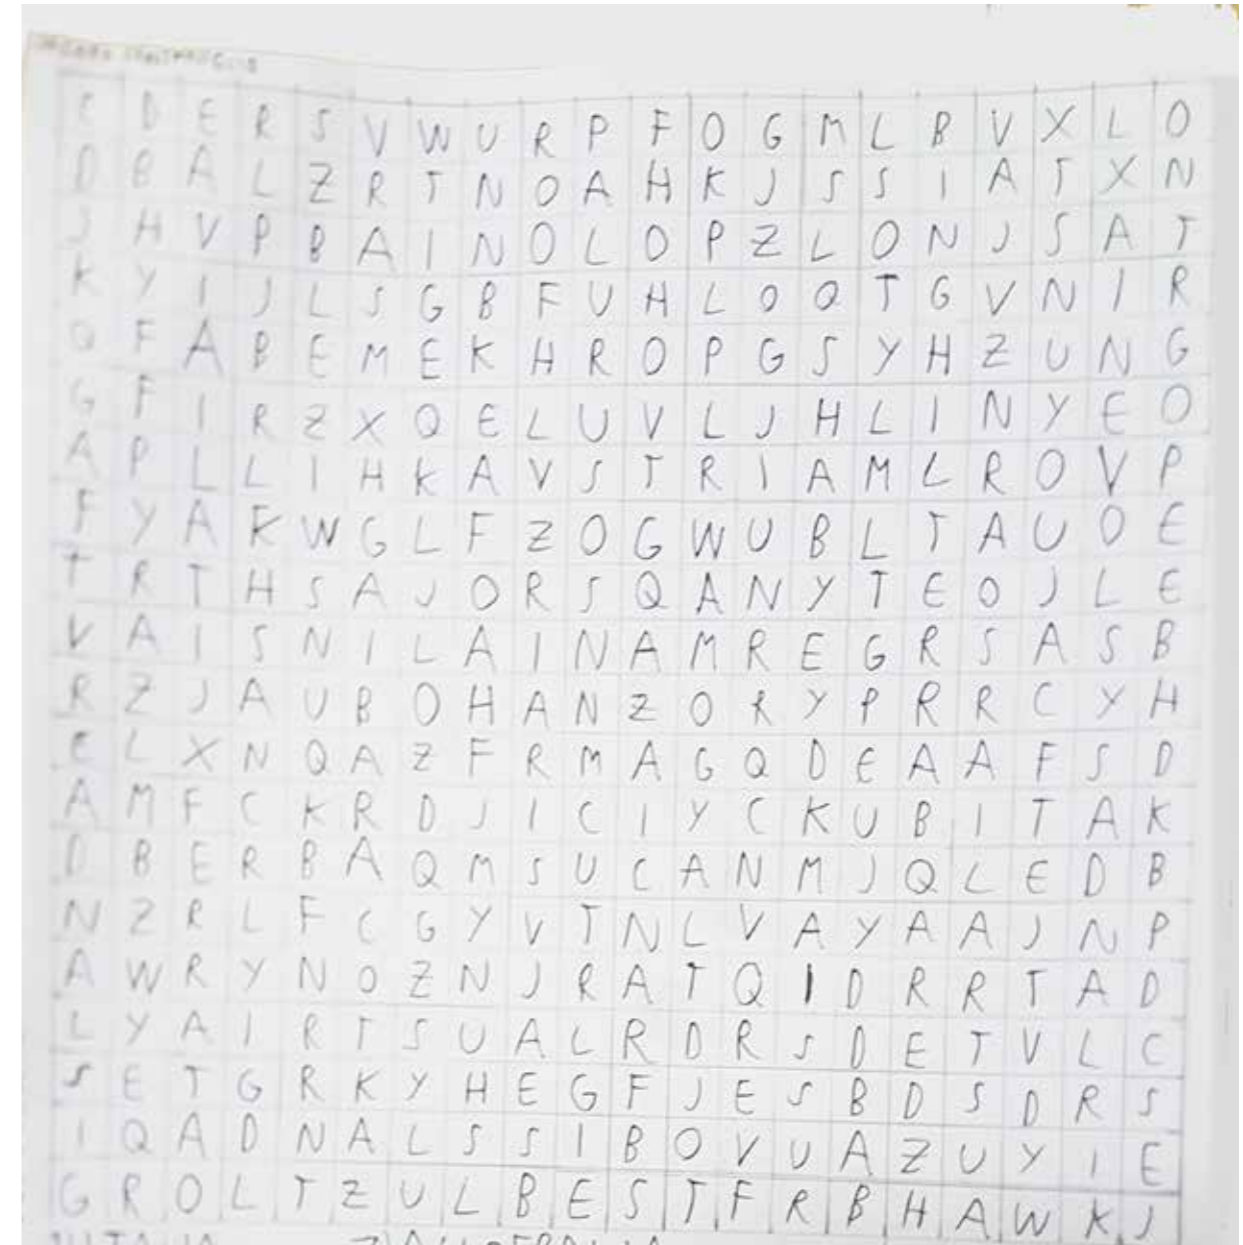 C D E R S V W U R P F O G M L B V X L O
D B A L Z R T N O A H K J S S I A T X N
J H V P B A I N O L O P Z L O N J S A T
K Y I J L S G B F U H L O O T G V N I R
Q F A B E M E K H R O P G S Y H Z U N G
G F I R Z X Q E L U V L J H L I N Y E O
A P L L I H K A V S T R I A M L R O V P
F Y A K W G L F Z O G W U B L T A U O E
T R T H S A J O R S Q A N Y T E O J L E
V A I S N I L A I N A M R E G R S A S B
R Z J A U B O H A N Z O R Y P R R C Y H
C L X N Q A Z F R M A G Q D E A A F S D
A M F C K R D J I C I Y C K U B I T A K
D B E R B A Q M S U C A N M J Q L E D B
N Z R L F C G Y V T N L V A Y A A J N P
A W R Y N O Z N J R A T Q I D R R T A D
L Y A I R T S U A L R D R S D E T V L C
S E T G R K Y H E G F J E S B D S D R S
I Q A D N A L S S I B O V U A Z U Y I E
G R O L T Z U L B E S T F R B H A W K J